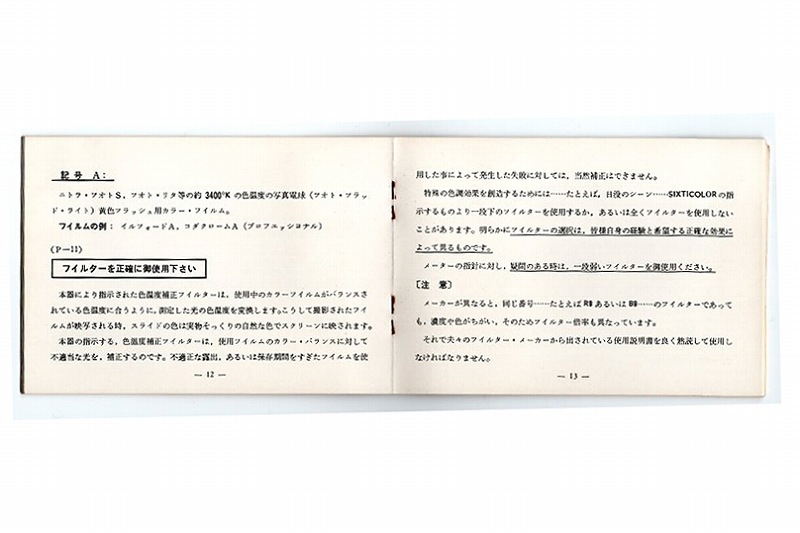 記号 A:
ニトラ・フオトS, フオト・リタ等の約 3400°K の色温度の写真電球（フオト・フラッ
ド・ライト）黄色フラッシュ用カラー・フイルム。
フイルムの例: イルフォードA, コダクロームA（プロフエッショナル）
(P—11)
フイルターを正確に御使用下さい
本器により指示された色温度補正フイルターは, 使用中のカラーフイルムがバランスさ
れている色温度に合うように, 測定した光の色温度を変換します。こうして撮影されたフイ
ルムが映写される時, スライドの色は実物そっくりの自然な色でスクリーンに映されます。
本器の指示する, 色温度補正フイルターは, 使用フイルムのカラー・バランスに対して
不適当な光を, 補正するのです。不適正な露出, あるいは保存期間をすぎたフイルムを使
— 12 —
用した事によって発生した失敗に対しては, 当然補正はできません。
特殊の色調効果を創造するためには……たとえば, 日没のシーン……SIXTICOLORの指
示するものより一段下のフイルターを使用するか, あるいは全くフイルターを使用しない
ことがあります。明らかにフイルターの選択は, 皆様自身の経験と希望する正確な効果に
よって異るものです。
メーターの指針に対し, 疑問のある時は, 一段弱いフイルターを御使用ください。
〔注 意〕
メーカーが異なると, 同じ番号……たとえば R9 あるいは B9……のフイルターであって
も, 濃度や色がちがい, そのためフイルター倍率も異なっています。
それで夫々のフイルター・メーカーから出されている使用説明書を良く熟読して使用し
なければなりません。
— 13 —